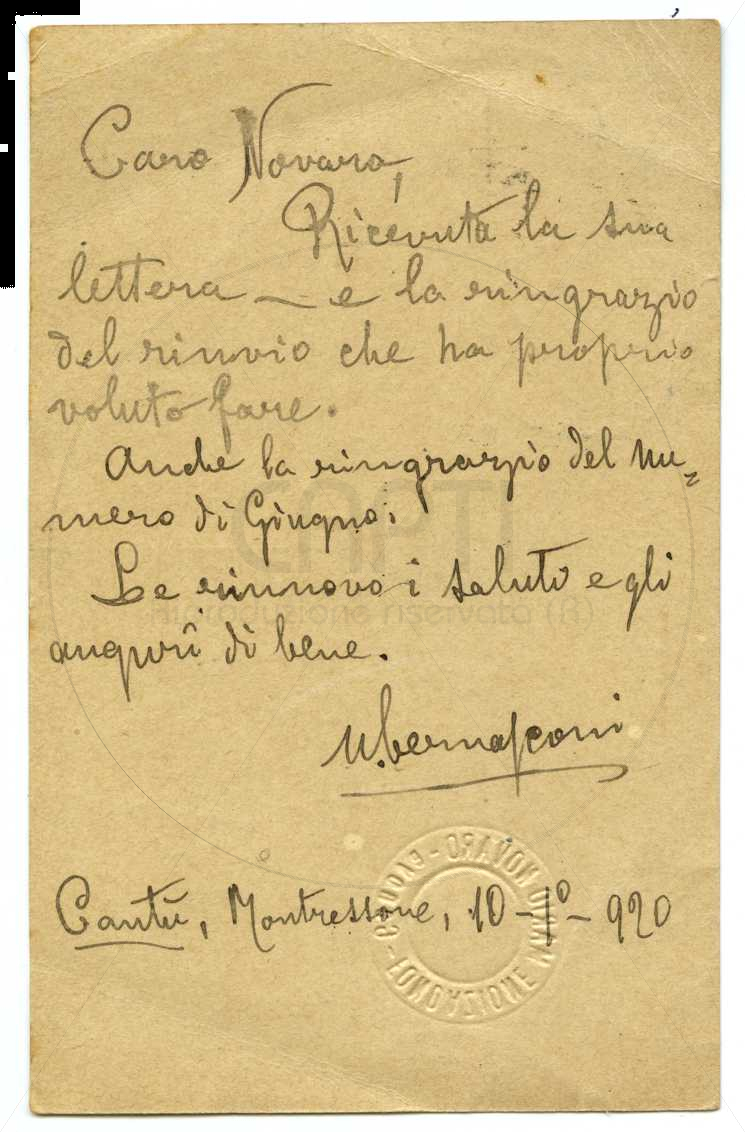 Caro Novaro,
Ricevuta la sua
lettera — e la ringrazio
del rinvio che ha proprio
voluto fare.
Anche la ringrazio del nu=
mero di Giugno.
Le rinnovo i saluti e gli
auguri di bene.
U. Bernasconi
Cantù, Montressone, 10 - 1° - 920
CAPTI
riproduzione riservata (R)
FONDAZIONE MARIO NOVARO - GENOVA